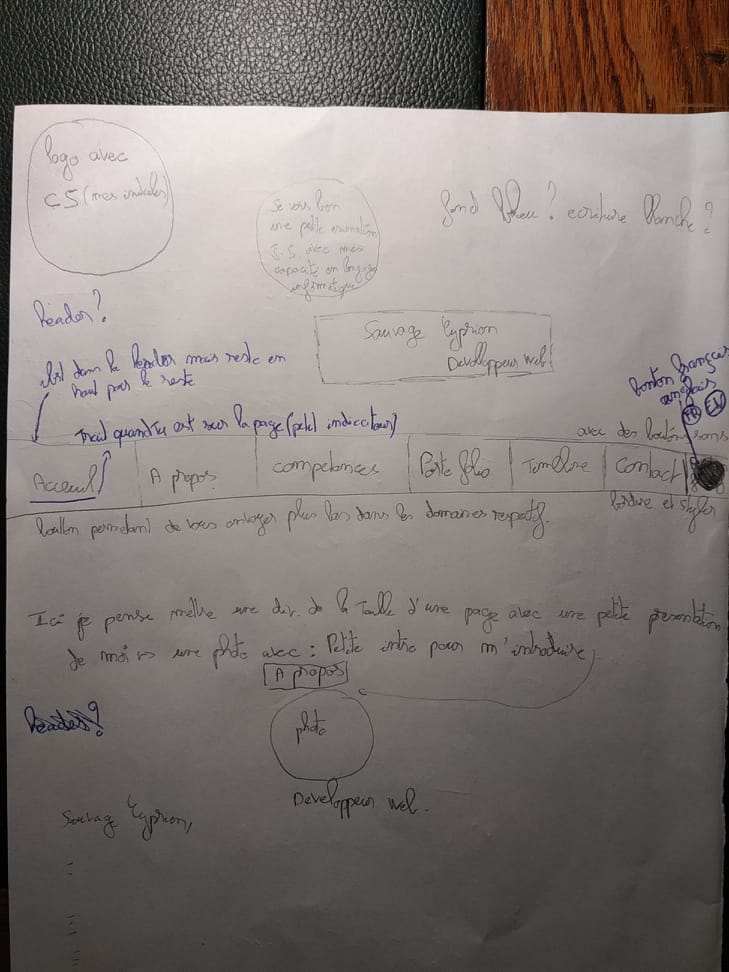 logo avec
CS (mes initiales)
Se vois bien
une petite animation
J.S. avec mes
capacité en langage
informatique
fond bleu? ecriture blanche?
header?
Sauvage Cyprien
Développeur Web!
est dans la header mais reste en
haut pour le reste
bouton français
anglais
FR EN
Trait quand tu est sur la page (petit indicateur)
avec des boutons
Acceuil
A propos
competances
Porte folio
Timeline
Contact
bordure et styler
boutton permettant de vous envoyer plus bas dans les domaines respectif.
Ici je pense mettre une div. de la Taille d'une page avec une petite presentation
de moi une photo avec: Petite intro pour m'introduire
A propos
header?
photo
Developpeur Web.
Sauvage Cyprien,